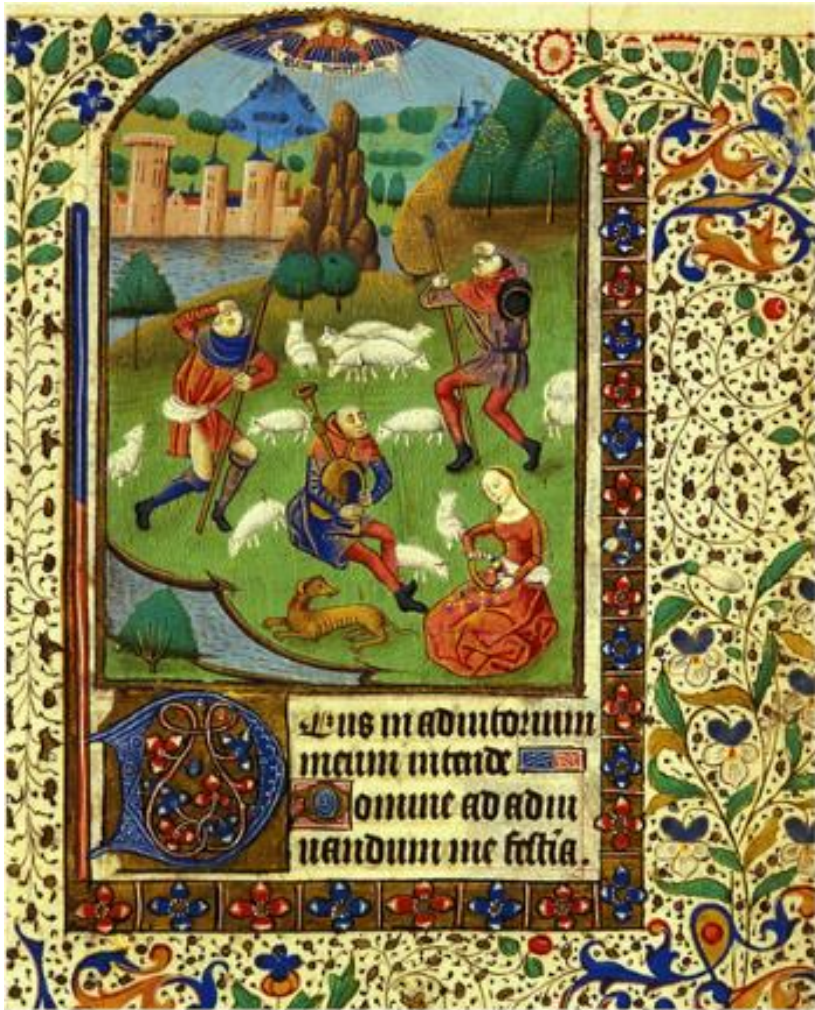 Deus in adiutorium
meum intende
Domine ad adiu
uandum me festia.